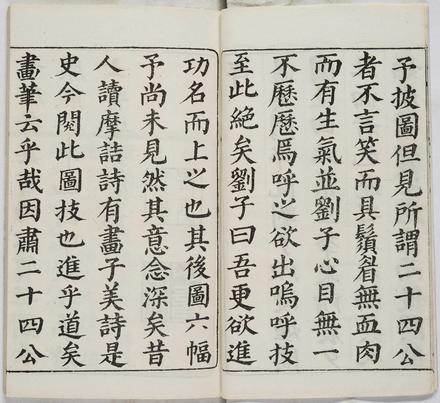 予披圖但見所謂二十四公
者不言笑而具鬚睂無血肉
而有生氣並劉子心目無一
不歷歷焉呼之欲出嗚呼技
至此絕矣劉子曰吾更欲進
功名而上之也其後圖六幅
予尚未見然其意念深矣昔
人讀摩詰詩有畫子美詩是
史今閱此圖技也進乎道矣
畫筆云乎哉因肅二十四公